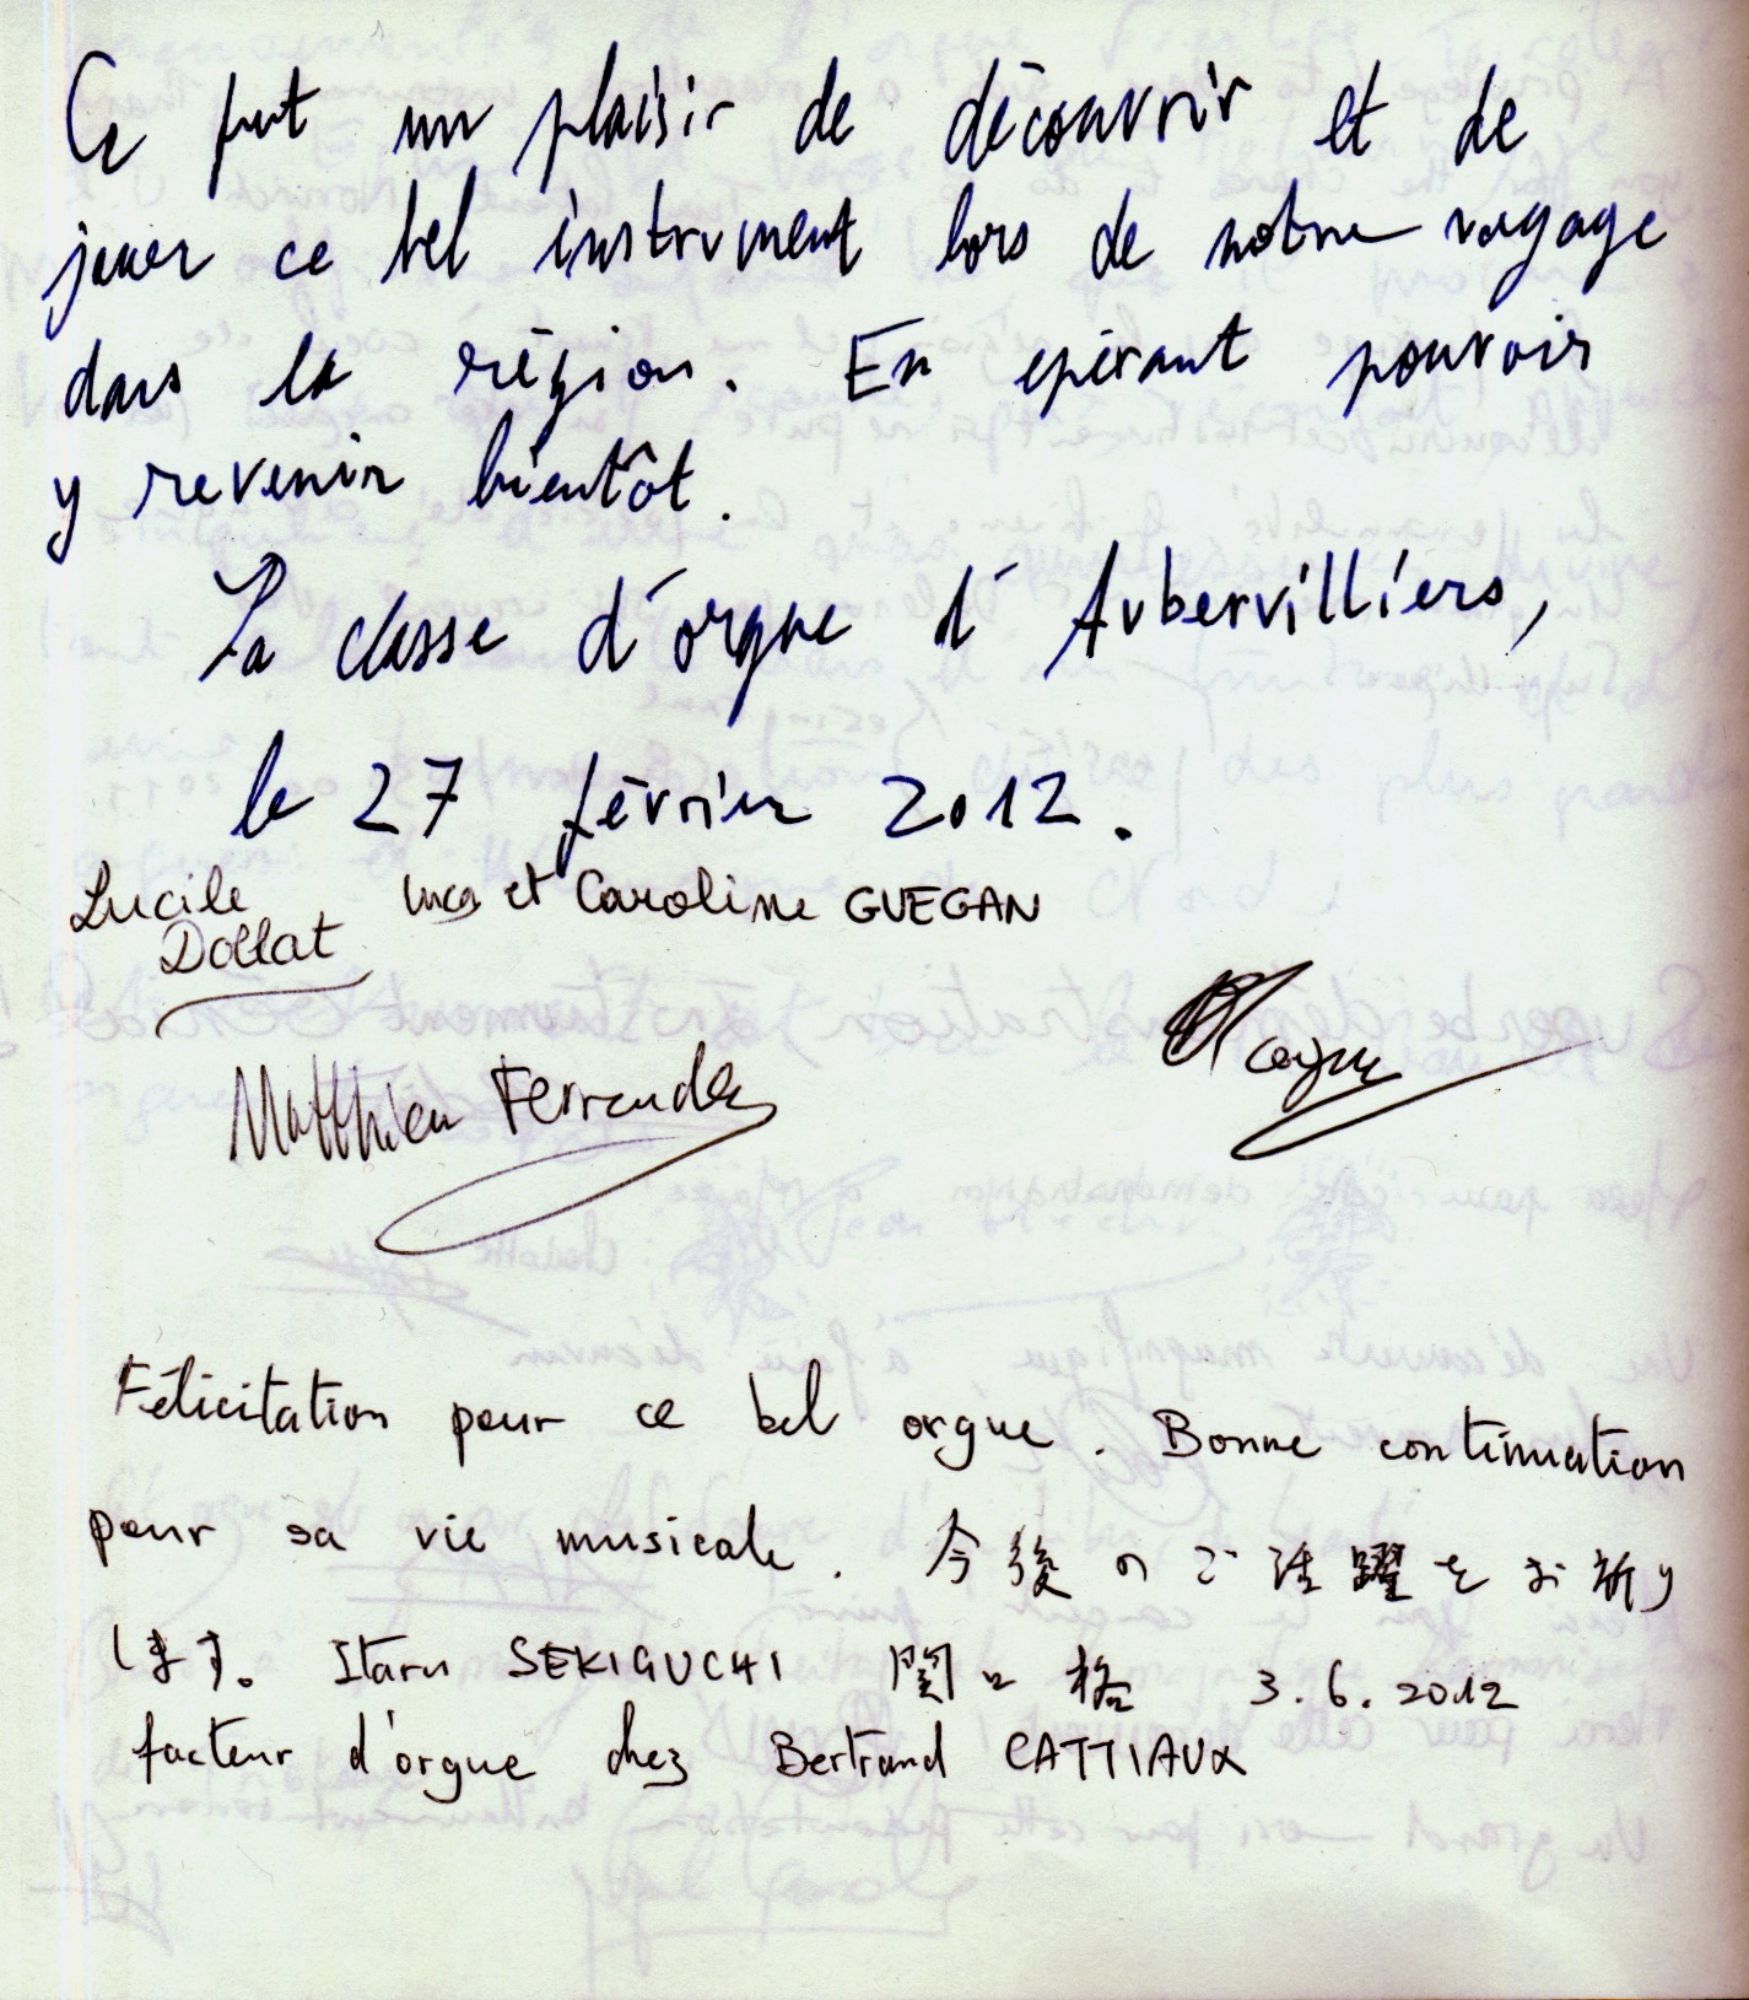 Ce fut un plaisir de découvrir et de
jouer ce bel instrument lors de notre voyage
dans la région. En epérant pouvoir
y revenir bientôt.
La classe d'orgue d'Aubervilliers,
le 27 février 2012.
Lucile
Dollat
Luca et Caroline GUEGAN
Matthieu Ferrandez
Félicitation pour ce bel orgue. Bonne continuation
pour sa vie musicale. 今後のご活躍をお祈り
します。 Itaru SEKIGUCHI 関口 格 3.6.2012
facteur d'orgue chez Bertrand CATTIAUX